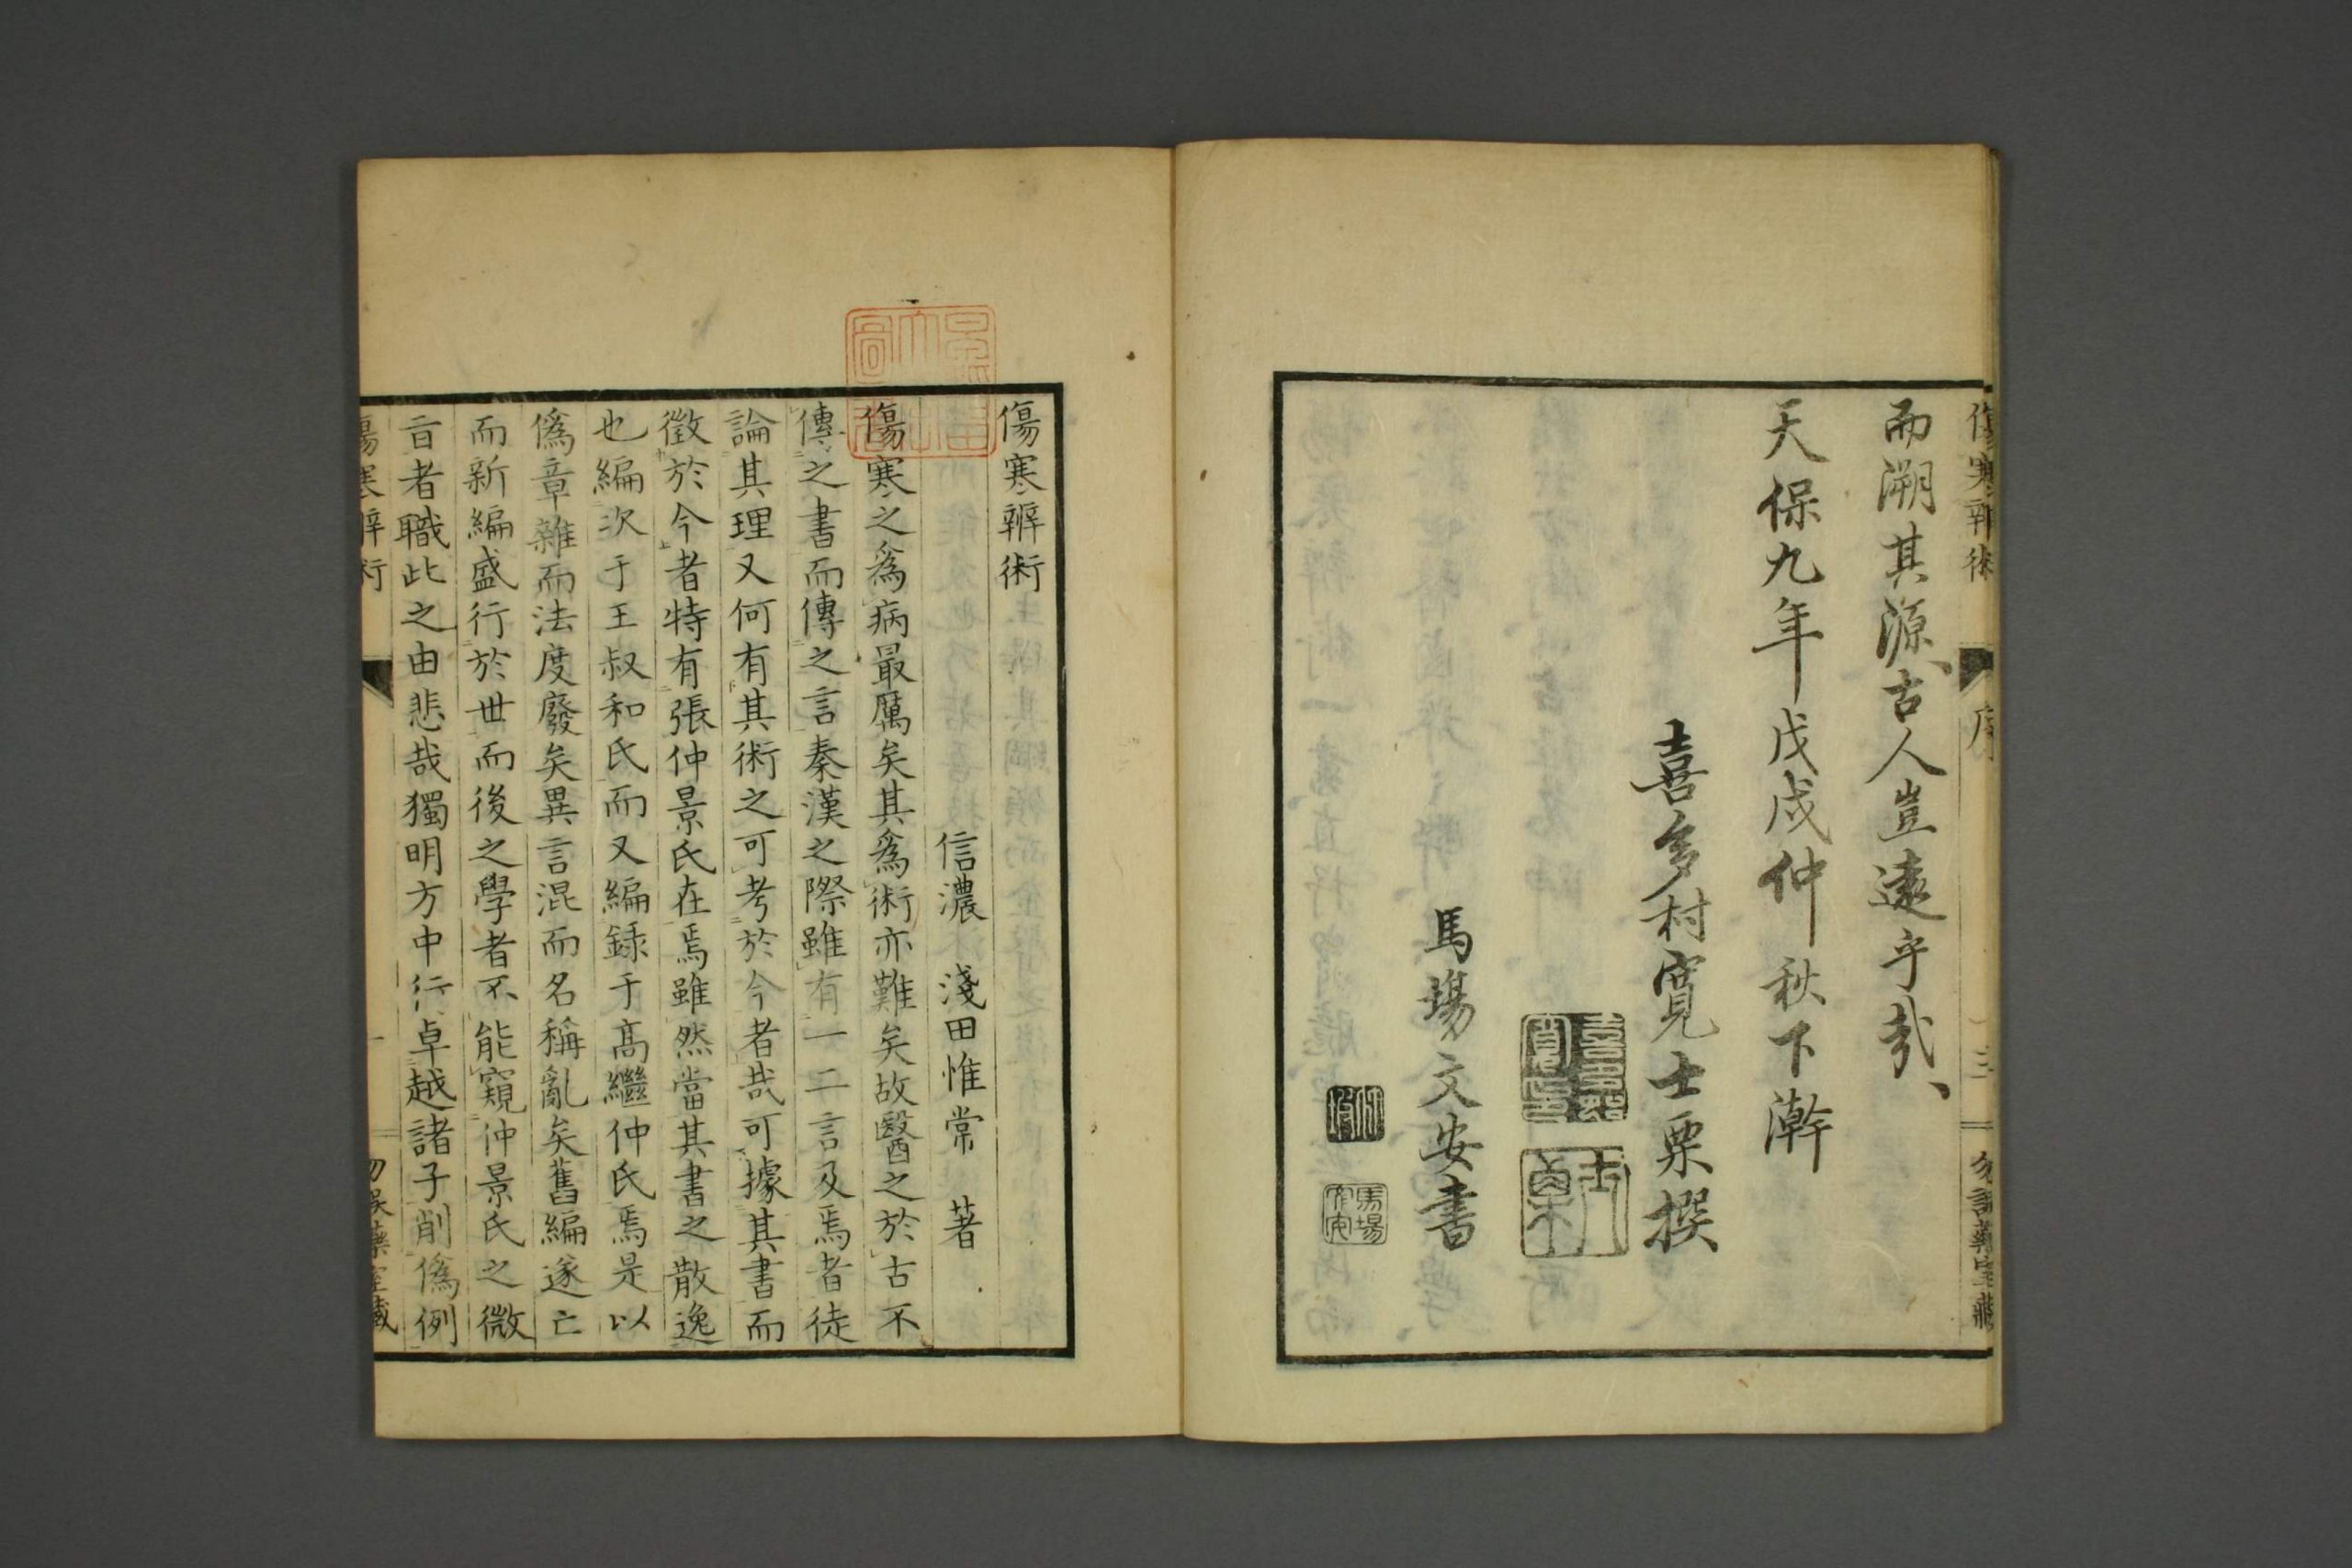 而溯其源、古人豈遠乎哉、
天保九年戊戌仲秋下澣
喜多村寬士栗撰
馬場文安書
傷寒辨術
信濃 淺田惟常 著
傷寒之爲病最厲矣其爲術亦難矣故醫之於古不
傳之書而傳之言秦漢之際雖有一二言及焉者徒
論其理又何有其術之可考於今者哉可據其書而
徵於今者特有張仲景氏在焉雖然當其書之散逸
也編次于王叔和氏而又編録于髙繼仲氏焉是以
僞章雜而法度廢矣異言混而名稱亂矣舊編遂亡
而新編盛行於世而後之學者不能窺仲景氏之微
旨者職此之由悲哉獨明方中行卓越諸子削僞例
傷寒辨術
一
勿誤藥室藏